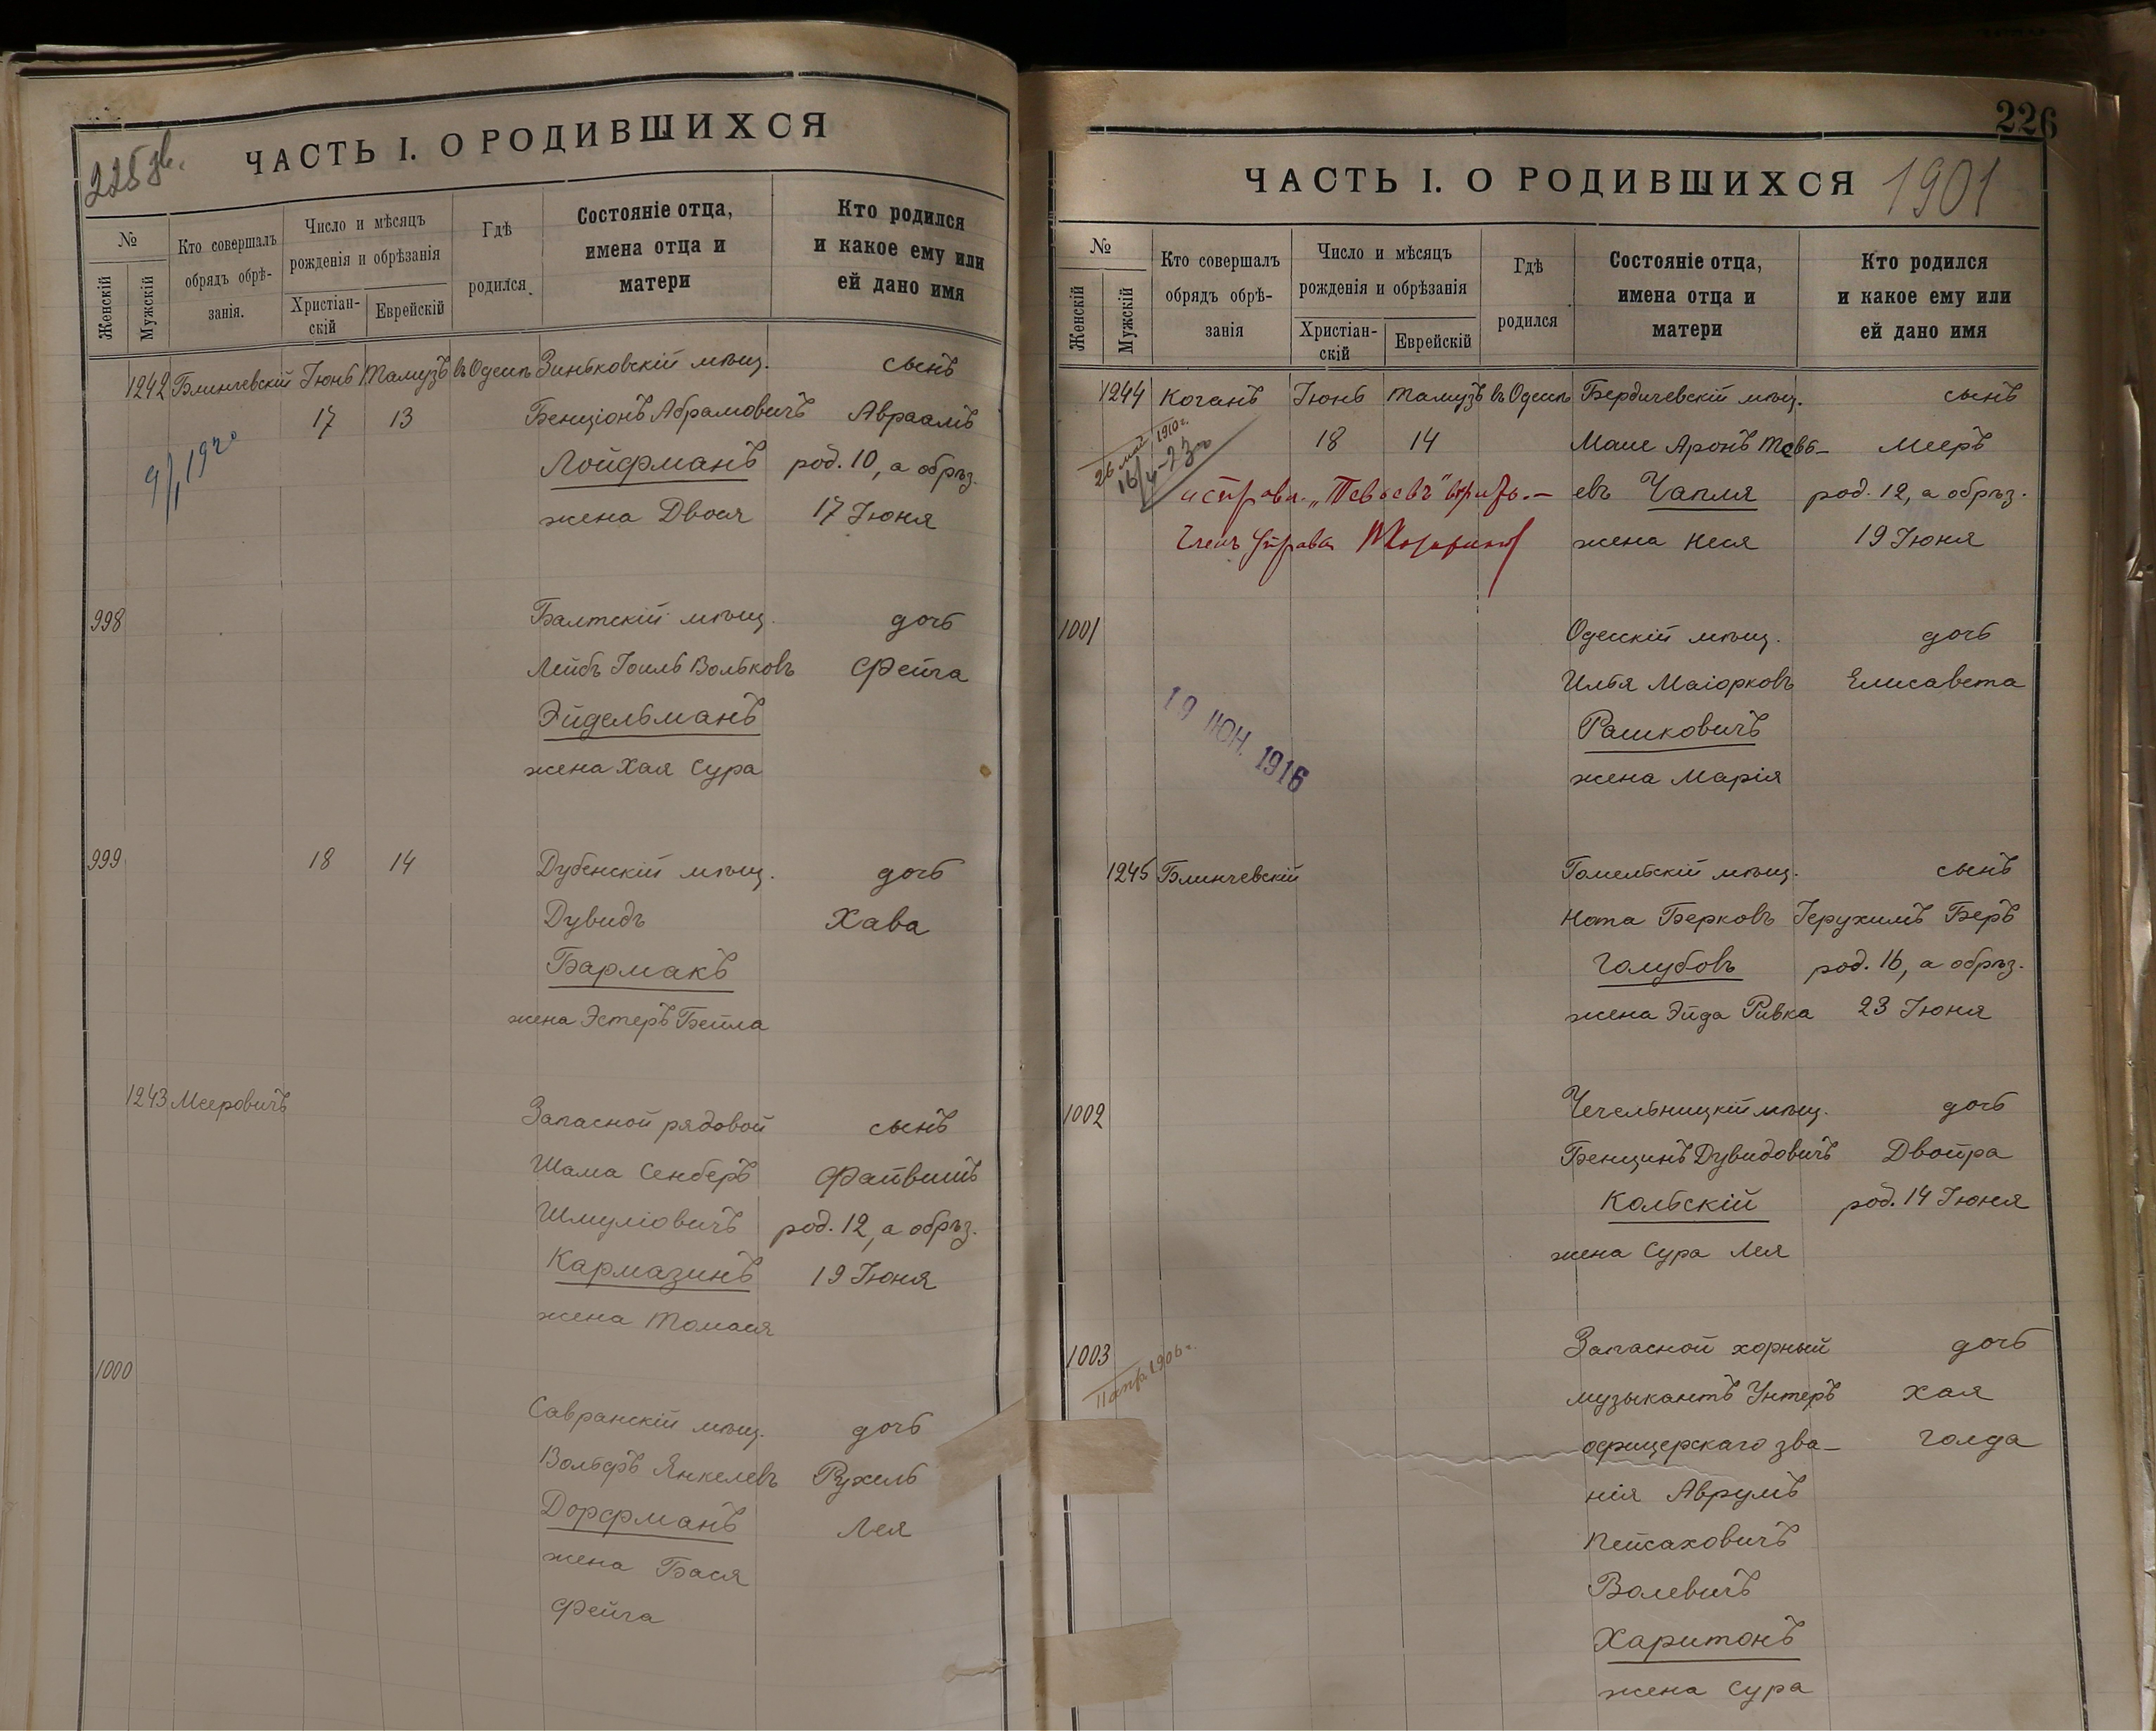 225 об.
ЧАСТЬ I. О РОДИВШИХСЯ
№
Женскій
Мужскій
Кто совершалъ
обрядъ обрѣ-
занія.
Число и мѣсяцъ
рожденія и обрѣзанія
Христіан-
скій
Еврейскій
Гдѣ
родился
Состояніе отца,
имена отца и
матери
Кто родился
и какое ему или
ей дано имя
1242 Блинчевскій Іюнь Тамузъ въ Одессѣ Зиньковскій мѣщ. сынъ
17 13 Бенціонъ Абрамовичъ Авраамъ
Лойфманъ род. 10, а обрѣз.
жена Двося 17 Іюня
9/I 1920
998 Балтскій мѣщ. дочь
Лейбъ Іоиль Вольковъ Фейга
Эйдельманъ
жена Хая Сура
999 18 14 Дубенскій мѣщ. дочь
Дувидъ Хава
Бармакъ
жена Эстеръ Бейла
1243 Мееровичъ Запасной рядовой сынъ
Шама Сенберъ Файвишъ
Шмуліовичъ род. 12, а обрѣз.
Кармазинъ 19 Іюня
жена Томася
1000 Савранскій мѣщ. дочь
Вольфъ Янкелевъ Рухель
Дорфманъ Лея
жена Бася
Фейга
226
ЧАСТЬ I. О РОДИВШИХСЯ 1901
№
Женскій
Мужскій
Кто совершалъ
обрядъ обрѣ-
занія
Число и мѣсяцъ
рожденія и обрѣзанія
Христіан-
скій
Еврейскій
Гдѣ
родился
Состояніе отца,
имена отца и
матери
Кто родился
и какое ему или
ей дано имя
1244 Коганъ Іюнь Тамузъ въ Одессѣ Бердичевскій мѣщ. сынъ
18 14 Маше Аронъ Тевь- Мееръ
26 май 1910 г.
16/4-23
исправл. „Тевьевъ" евъ Чапля род. 12, а обрѣз.
Членъ Управы жена Неся 19 Іюня
1001 Одесскій мѣщ. дочь
Илья Маіорковъ Елисавета
Рашковичъ
жена Марія
19 ІЮН. 1916
1245 Блинчевскій Гомельскій мѣщ. сынъ
Нота Берковъ Іерухимъ Беръ
Голубовъ род. 16, а обрѣз.
жена Эйда Ривка 23 Іюня
1002 Чечельницкій мѣщ. дочь
Бенцинъ Дувидовичъ Двойра
Кольскій род. 14 Іюня
жена Сура Лея
1003 Запасной хорный дочь
11 апр. 1906 г.
музыкантъ Унтеръ Хая
офицерскаго зва- Голда
нія Аврумъ
Пейсаховичъ
Волевичъ
Харитонъ
жена Сура